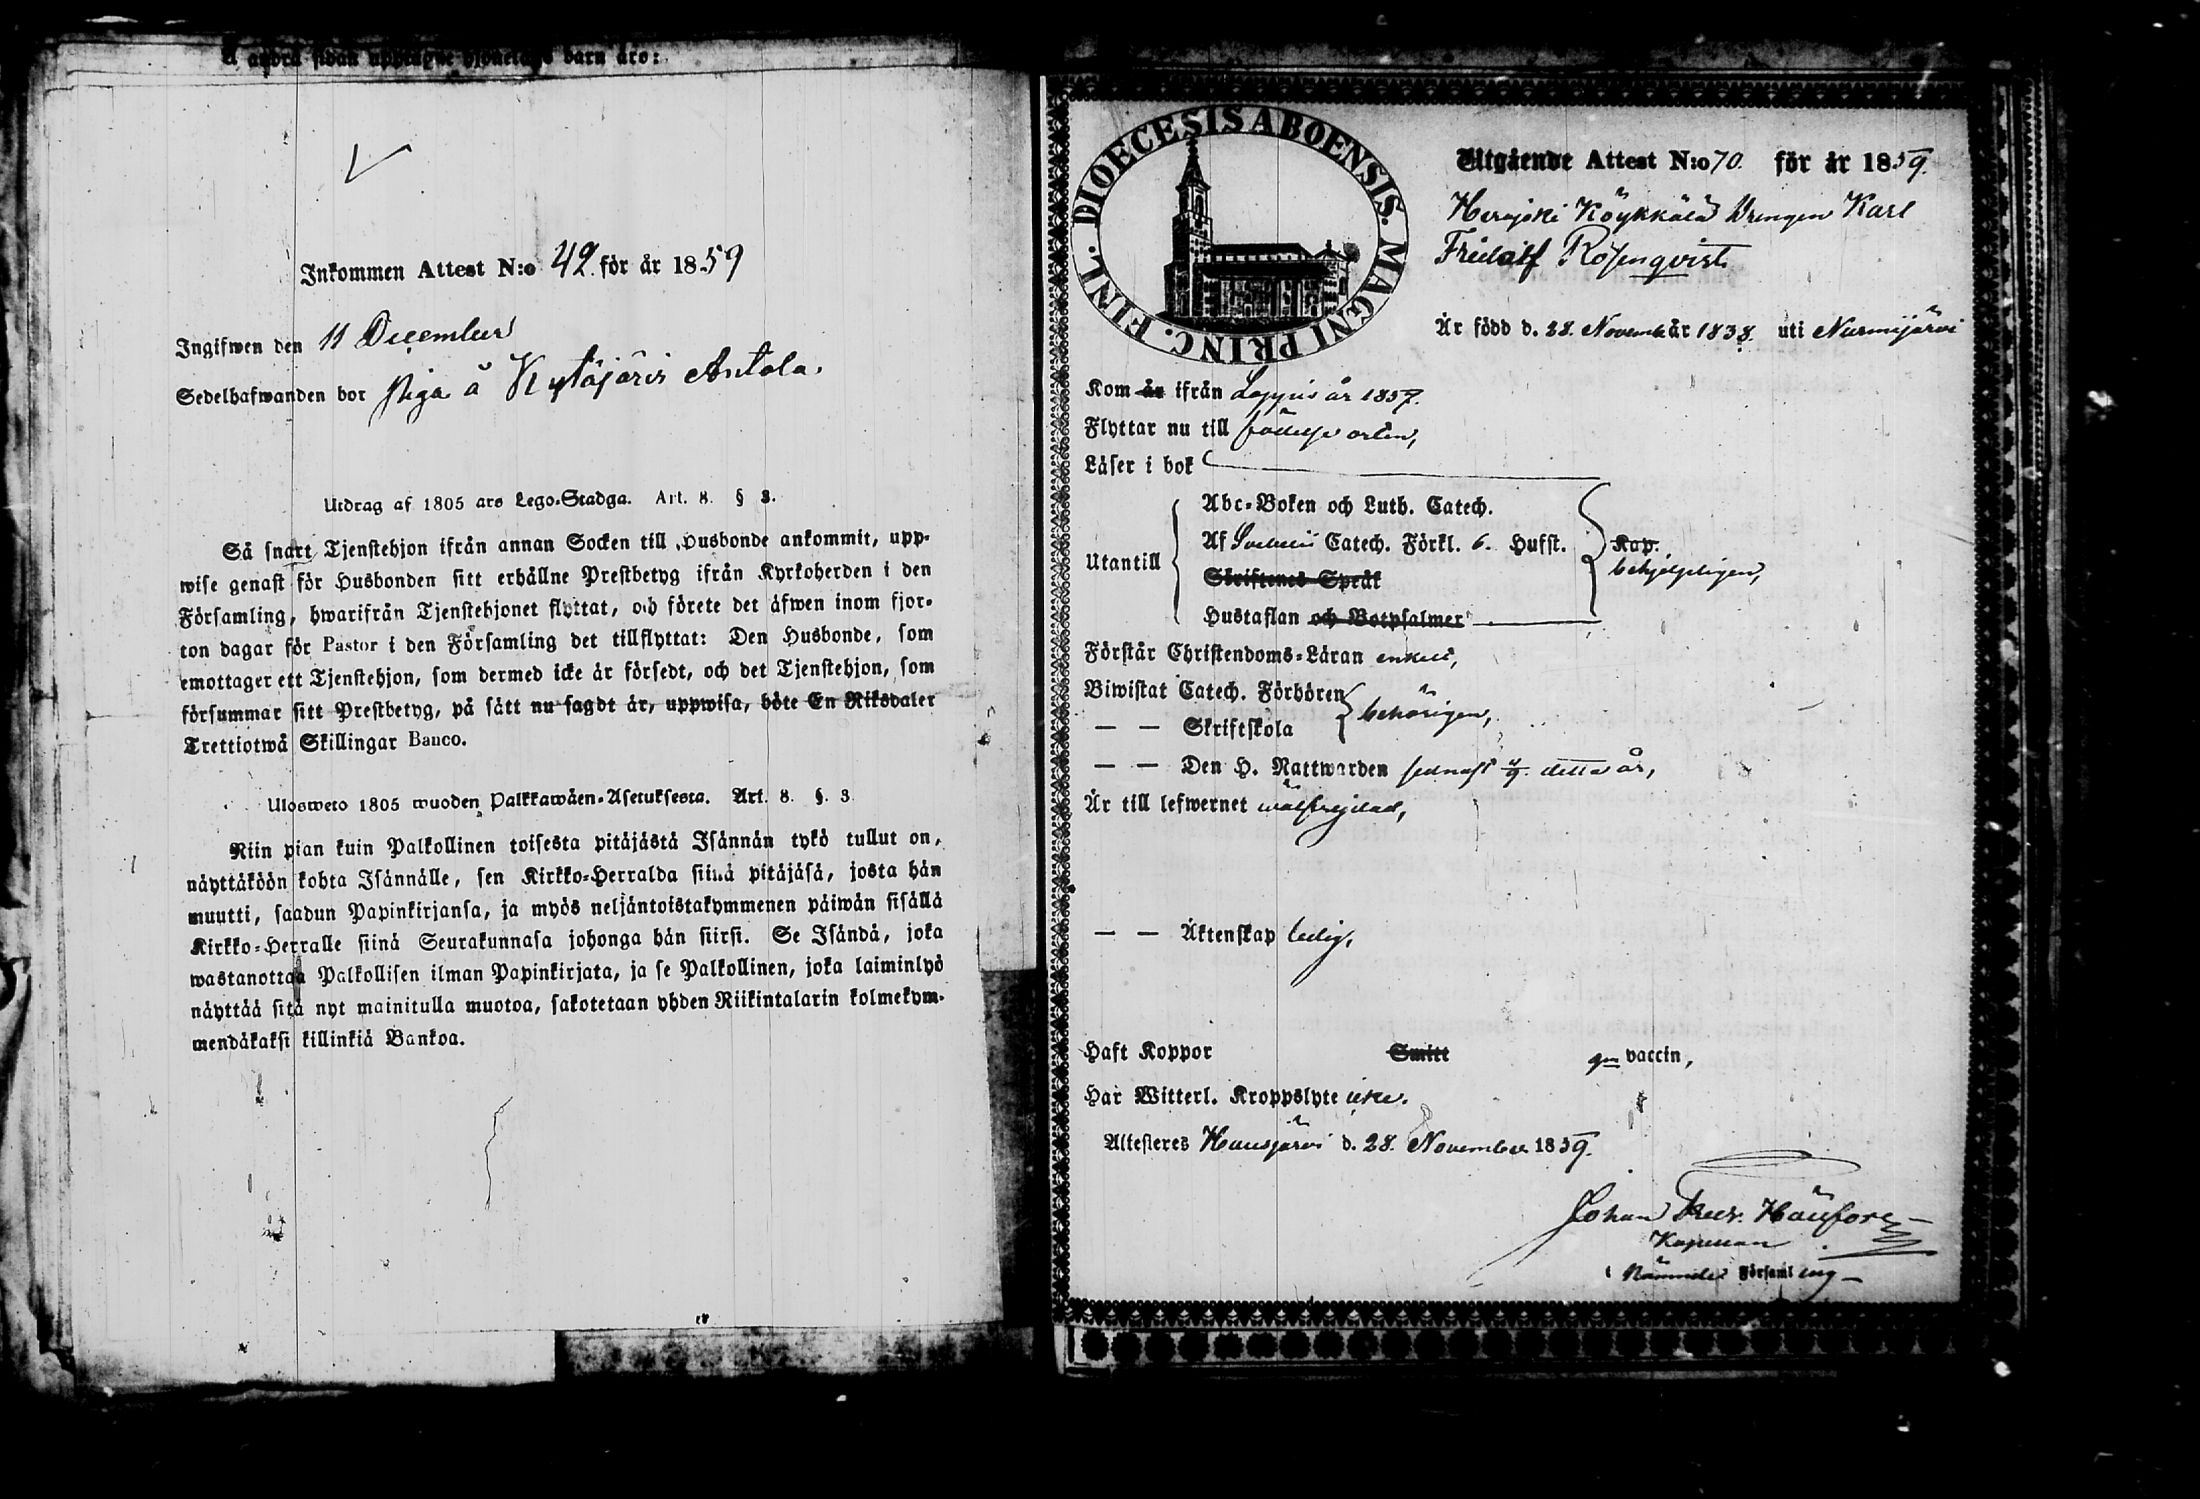 å andra sidan upptagne hjonelags barn äro:
Inkommen Attest N:o 42. för år 1859
Ingifwen den 11 December
Sedelhafwanden bor piga å Kytäjärvi Antola.
Utdrag af 1805 års Lego-Stadga. Art. 8. § 3.
Så snart Tjenstehjon ifrån annan Socken till Husbonde ankommit, upp-
wise genast för Husbonden sitt erhållne Prestbetyg ifrån Kyrkoherden i den
Församling, hwarifrån Tjenstehjonet flyttat, och förete det äfwen inom fjor-
ton dagar för Pastor i den Församling det tillflyttat: Den Husbonde, som
emottager ett Tjenstehjon, som dermed icke är försedt, och det Tjenstehjon, som
försummar sitt Prestbetyg, på sätt nu sagdt är, uppwisa, böte En Riksdaler
Trettiotwå Skillingar Banco.
Ulosweto 1805 wuoden Palkkawäen-Asetuksesta. Art. 8. §. 3
Niin pian kuin Palkollinen toisesta pitäjästä Isännän tykö tullut on,
näyttäköön kohta Isännälle, sen Kirkko-Herralda siinä pitäjäsä, josta hän
muutti, saadun Papinkirjansa, ja myös neljäntoistakymmenen päiwän sisällä
Kirkko-Herralle siinä Seurakunnasa johonga hän siirsi. Se Isändä, joka
wastanottaa Palkollisen ilman Papinkirjata, ja se Palkollinen, joka laiminlyö
näyttää sitä nyt mainitulla muotoa, sakotetaan yhden Riikintalarin kolmekym-
mendäkaksi killinkiä Bankoa.
DIOECESIS ABOENSIS. MAGNI PRINC. FINL.
Utgående Attest N:o 70. för år 1859.
Herajoki Köykkälä Drengen Karl
Fridolf Rosenqvist
Är född d. 28. Novemb år 1838. uti Nurmijärvi
Kom år ifrån Loppis år 1857.
Flyttar nu till födelse orten,
Läser i bok
Utantill
Abc-Boken och Luth. Catech.
Af Svebelii Catech. Förkl. 6. Hufst.
Skriftenes Språk
Hustaflan och Botpsalmer
Kap.
behjelpligen,
Förstår Christendoms-Läran enkelt,
Biwistat Catech. Förhören
— — Skriftskola
behörigen,
— — Den H. Nattwarden sednast detta år,
Är till lefwernet wälfrejdad,
— — Äktenskap ledig,
Haft Koppor Smitt gm vaccin,
Har Witterl. Kroppslyte icke.
Attesteres Hausjärvi d. 28. November 1859.
Johan Fredr. Häufors
Kapellan
i Nämnde Församling